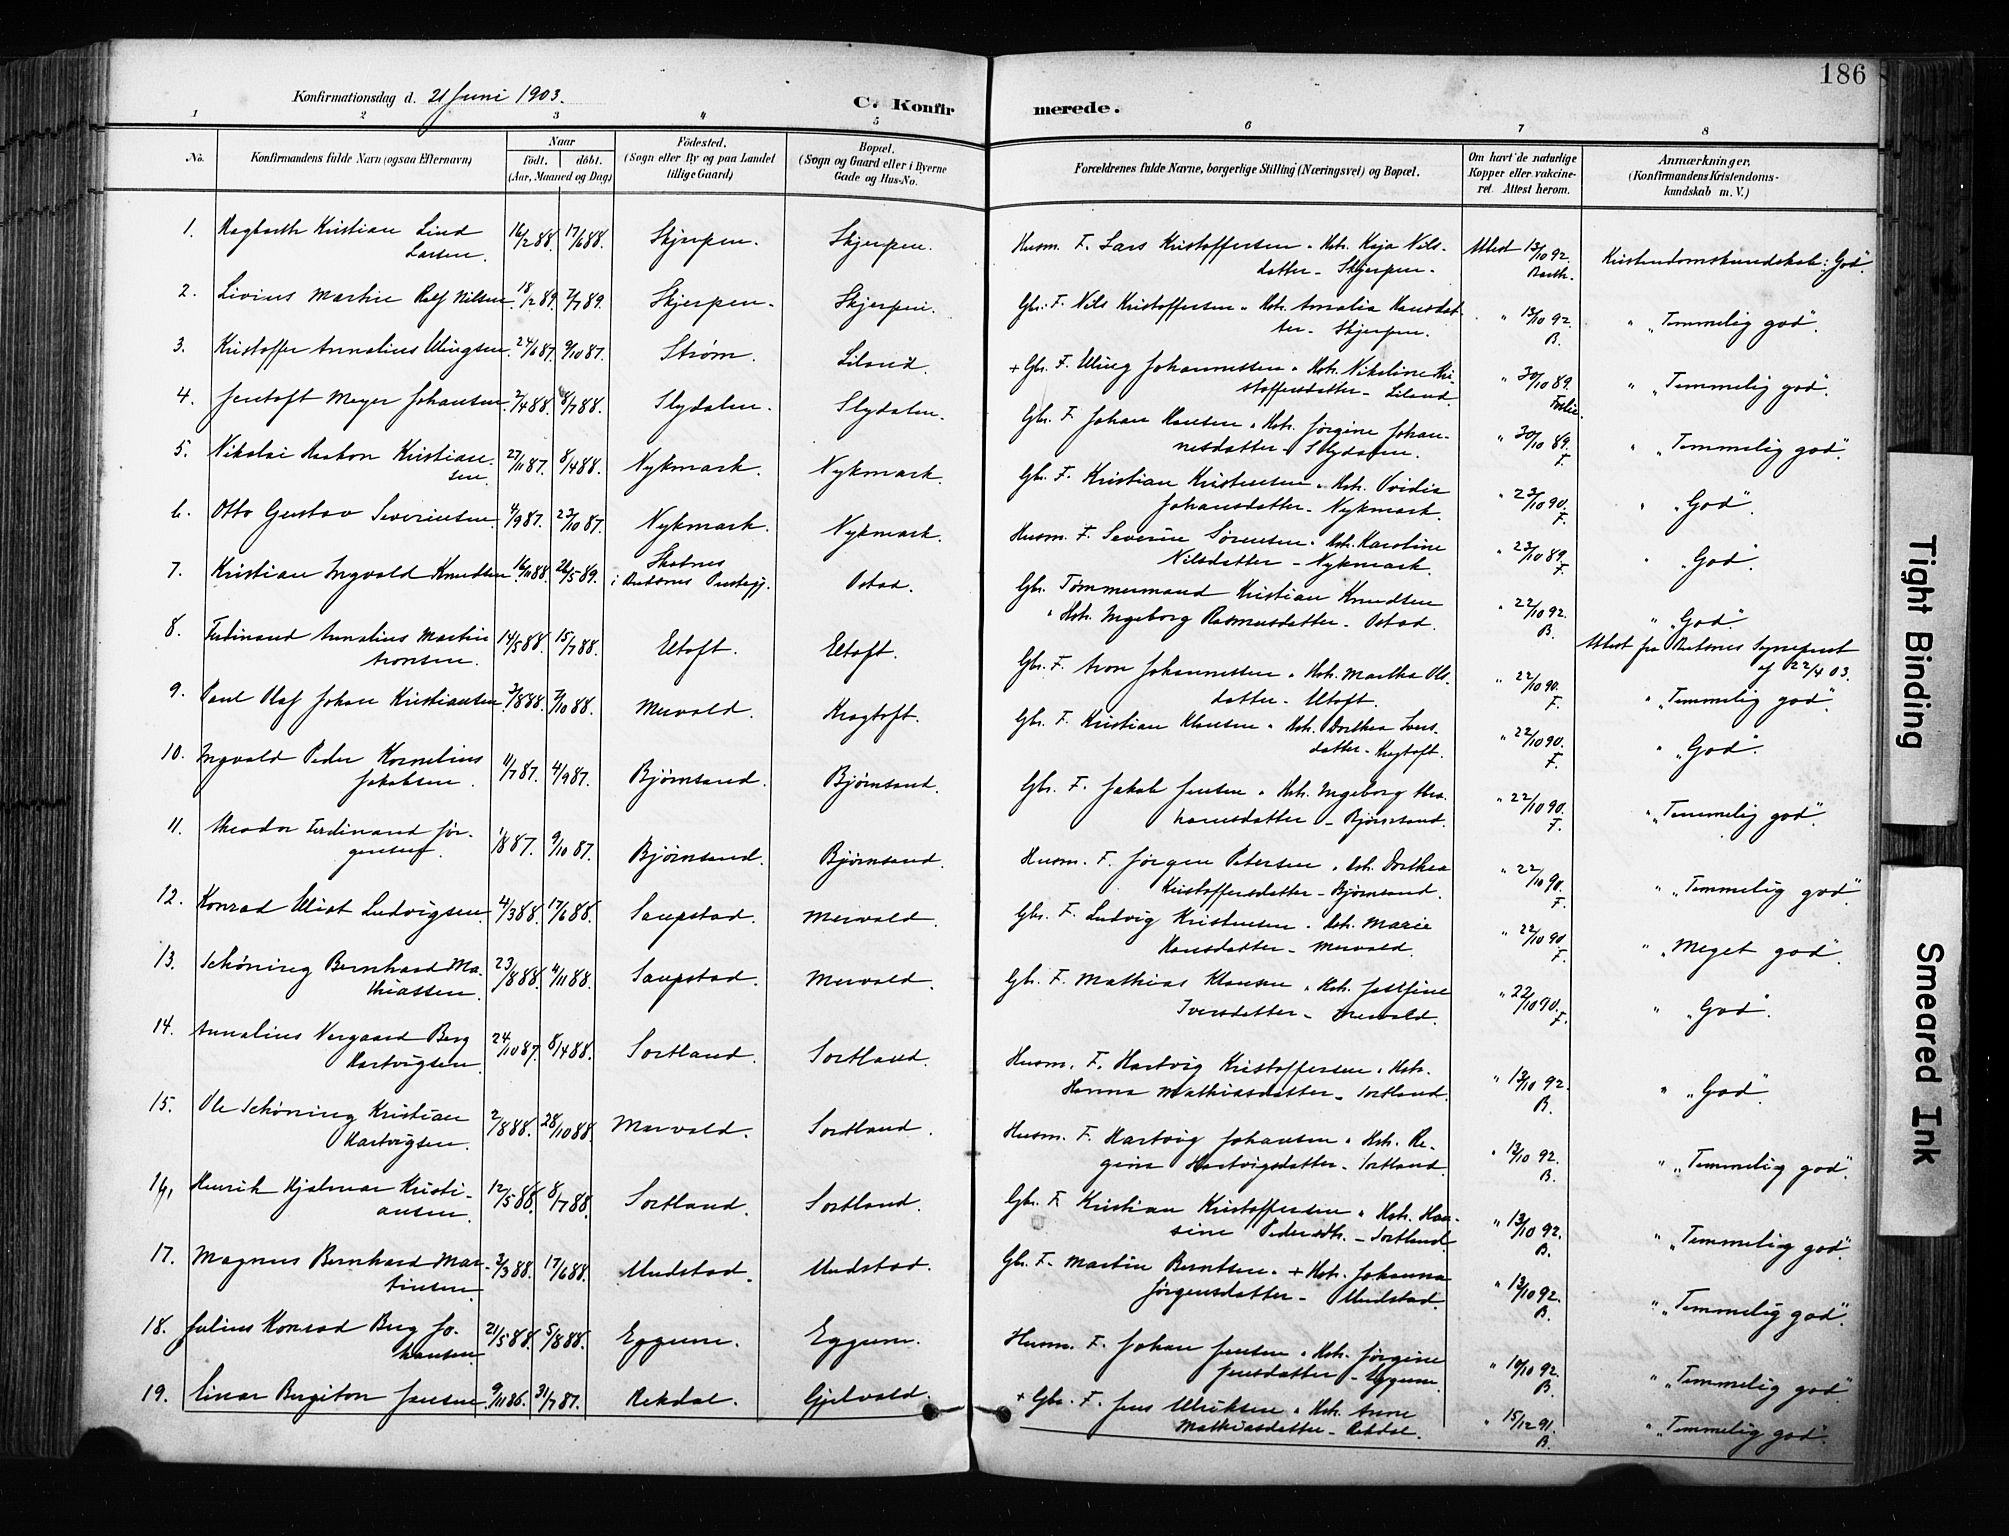 186
Konfirmationsdag d. 21 Juni 1903.
C. Konfirmerede.
1 2 3 4 5 6 7 8
No.
Konfirmandens fulde Navn (ogsaa Efternavn)
Naar
födt. döbt.
(Aar, Maaned og Dag)
Födested.
(Sogn eller By og paa Landet
tillige Gaard)
Bopæl.
(Sogn og Gaard eller i Byerne
Gade og Hus-No.
Forældrenes fulde Navne, borgerlige Stilling (Næringsvei) og Bopæl.
Om havt de naturlige
Kopper eller vakcine-
ret. Attest herom.
Anmærkninger,
(Konfirmandens Kristendoms-
kundskab m. V.)
1. Kristian Lind 16/2 88. 17/6 88. Skjerpen. Skjerpen. Husm. F. Lars Kristoffersen. Hstr. Kaja Nils- Attest 13/10 92. Kristendomskundskab: "God".
Larsen. datter - Skjerpen.
2. Livius Martin Rolf Nilsen 18/2 89. 7/7 89. Skjerpen. Skjerpen. Gbr. F. Nils Kristoffersen " Hstr. Amalia Hansdat- " 13/10 92. " "Temmelig god".
ter - Skjerpen. B.
3. Kristoffer Annalius Ulrigsen 24/6 87. 9/10 87. Strøm. Liland. + Gbr. F. Ulrig Johannessen " Hstr. Nikoline Kri- " 30/10 89. " "Temmelig god".
stoffersdatter - Liland.
4. Jentoft Meyer Johansen 2/4 88. 8/7 88. Slydalen. Slydalen. Gbr. F. Johan Hansen " Hstr. Jørgine Johan- " 30/10 89. " "Temmelig god".
nesdatter - Slydalen. F.
5. Nikolai Haakon Kristian- 27/11 87. 8/4 88. Nykmark. Nykmark. Gbr. F. Kristian Kristensen " Hstr. Ovidia " 23/10 90. " "God".
sen. Johansdatter - Nykmark. F.
6. Otto Gustav Severinsen 4/9 87. 23/10 87. Nykmark. Nykmark. Husm. F. Severin Sørensen " Hstr. Karoline " 23/10 89. " "God".
Nilsdatter - Nykmark. F.
7. Kristian Ingvald Knudsen 16/11 88. 26/5 89. Skatnes Ostad. Gbr. Tømmermand Kristian Knudsen " 22/10 92. " "God".
" Hstr. Ingeborg Rasmusdatter - Ostad. B. Attest fra Sogneprest
af 22/4 03.
8. Ferdinand Annalius Martin 14/5 88. 15/7 88. Eltoft. Eltoft. Gbr. F. Aron Johannessen " Hstr. Martha Ols- " 22/10 90. " "Temmelig god".
Aronsen. datter - Eltoft. F.
9. Paul Olaf Johan Kristiansen 3/8 88. 7/10 88. Mervold. Kragtoft. Gbr. F. Kristian Klausen " Hstr. Dorthea Ivers- " 22/10 90. " "God".
datter - Kragtoft. F.
10. Ingvald Peder Kornelius 11/7 87. 4/9 87. Bjørnsand. Bjørnsand. Gbr. F. Jakob Jensen " Hstr. Ingeborg " 22/10 90. " "Temmelig god".
Jakobsen. - Bjørnsand. F.
11. Theodor Ferdinand Jør- 1/8 87. 9/10 87. Bjørnsand. Bjørnsand. Husm. F. Jørgen Petersen " Hstr. Dorthea " 22/10 90. " "Temmelig god".
gensen. Kristoffersdatter - Bjørnsand. F.
12. Konrad Ulrik Ludvigsen 4/3 88. 17/6 88. Saupstad. Mervold. Gbr. F. Ludvig Kristensen " Hstr. Marie " 22/10 90. " "Meget god".
Hansdatter - Mervold. F.
13. Schøning Bernhard Ma- 23/8 88. 4/11 88. Saupstad. Mervold. Gbr. F. Mathias Klausen " Hstr. Josefine " 22/10 90. " "God".
thiassen. Iversdatter - Mervold. F.
14. Annalius Nergaard Berg 24/10 87. 8/4 88. Sortland. Sortland. Husm. F. Hartvig Kristoffersen " Hstr. " 13/10 92. " "God".
Hartvigsen. Hanna Mathiasdatter - Sortland. B.
15. Ole Schøning Kristian 2/8 88. 28/10 88. Mervold. Sortland. Husm. F. Hartvig Johansen " Hstr. Re- " 13/10 92. " "Temmelig god".
Hartvigsen. gine Hartvigsdatter - Sortland. B.
16. Henrik Hjalmar Kristi- 12/5 88. 8/7 88. Sortland. Sortland. Gbr. F. Kristian Kristoffersen " Hstr. Han- " 13/10 92. " "Temmelig god".
ansen. sine Pedersdtr. - Sortland. B.
17. Magnus Bernhard Mar- 3/3 88. 17/6 88. Undstad. Undstad. Gbr. F. Martin Berntsen. + Hstr. Johanna " 13/10 92. " "Temmelig god".
tinsen. Jørgensdatter - Undstad. B.
18. Julius Konrad Berg Jo- 21/5 88. 5/8 88. Eggum. Eggum. Husm. F. Johan Jensen " Hstr. Jørgine " 10/10 92. " "Temmelig god".
hansen. Jensdatter - Eggum. B.
19. Einar Bergiton Jensen 9/11 86. 31/7 87. Rekdal. Gjelvold. + Gbr. F. Jens Ulriksen " Hstr. Anne " 15/12 91. " "Temmelig god".
Mathiasdatter - Rekdal. B.
Tight Binding
Smeared Ink